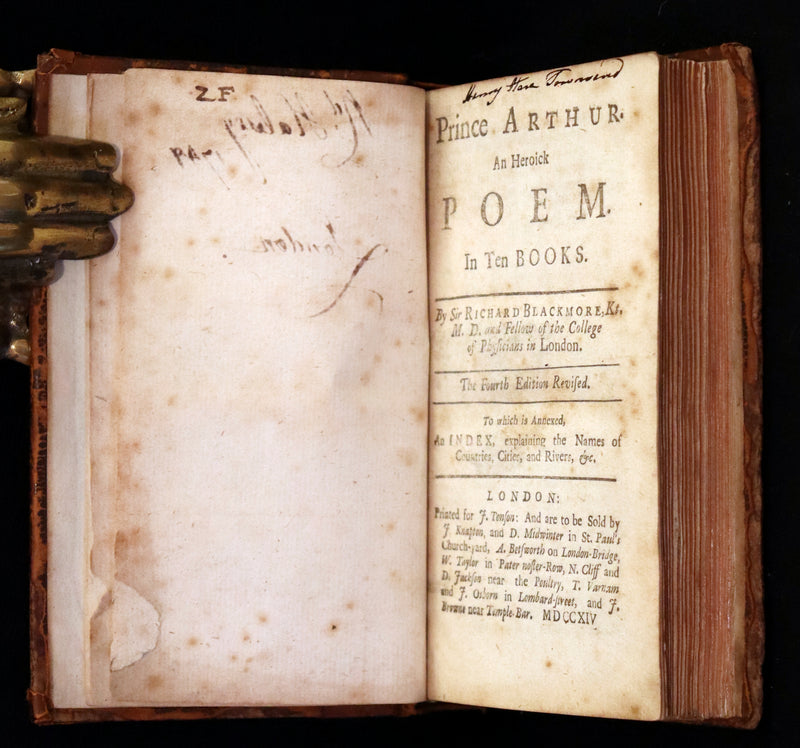 ZF
London
Henry Hare Townsend
Prince ARTHUR.
An Heroick
POEM.
In Ten BOOKS.
By Sir RICHARD BLACKMORE, Kt.
M. D. and Fellow of the College
of Phyſicians in London.
The Fourth Edition Reviſed.
To which is Annexed,
An INDEX, explaining the Names of
Countries, Cities, and Rivers, &c.
LONDON:
Printed for J. Tonſon: And are to be Sold by
J. Knapton, and D. Midwinter in St. Paul's
Church-yard, A. Betſworth on London-Bridge,
W. Taylor in Pater noſter-Row, N. Cliff and
D. Jackſon near the Poultry, T. Varnam
and J. Osborn in Lombard-ſtreet, and J.
Browne near Temple-Bar. MDCCXIV